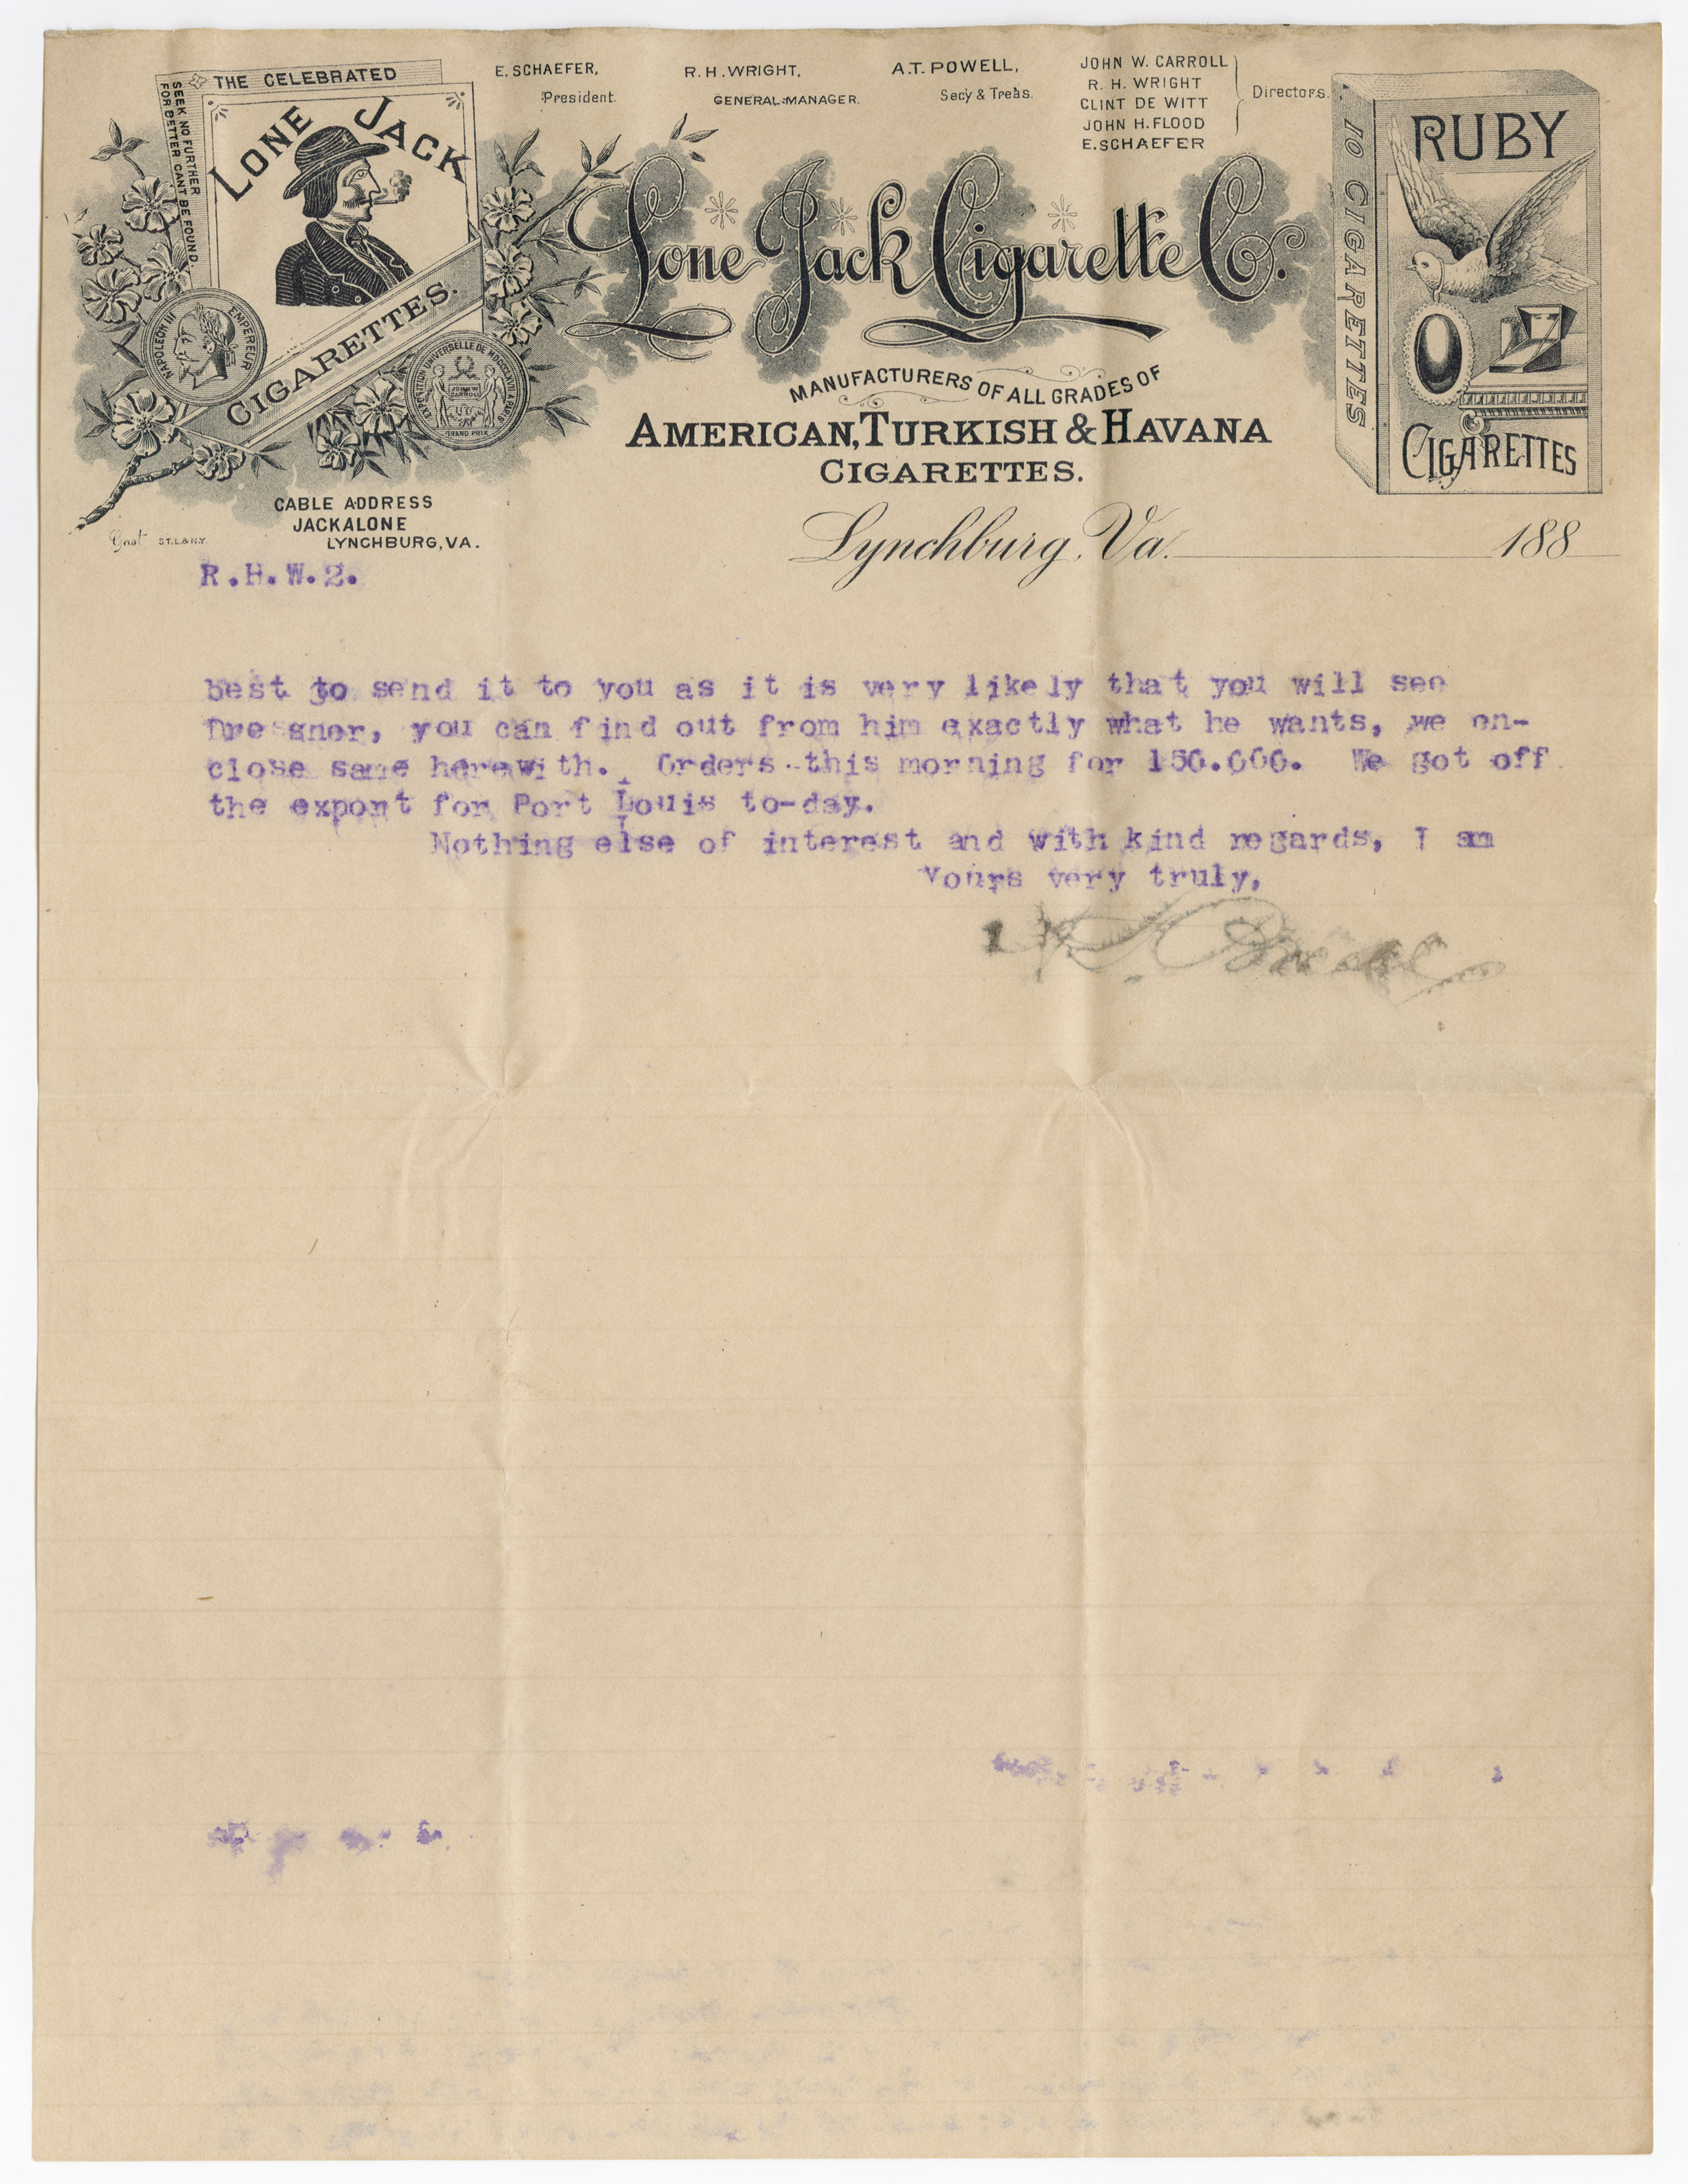 THE CELEBRATED
LONE JACK
SEEK NO FURTHER
FOR BETTER CANT BE FOUND.
CIGARETTES.
NAPOLEON III EMPEREUR
EXPOSITION UNIVERSELLE DE MDCCCLXVII A PARIS
JOHN W.
CARROLL
GRAND PRIX
E. SCHAEFER,
President.
R. H. WRIGHT,
GENERAL MANAGER.
A.T. POWELL,
Secy & Treas.
JOHN W. CARROLL
R. H. WRIGHT
CLINT DE WITT
JOHN H. FLOOD
E. SCHAEFER
Directors.
Lone Jack Cigarette Co.
MANUFACTURERS OF ALL GRADES OF
AMERICAN, TURKISH & HAVANA
CIGARETTES.
10 CIGARETTES
RUBY
CIGARETTES
CABLE ADDRESS
JACKALONE
LYNCHBURG, VA.
Gast ST.L. & N.Y.
Lynchburg, Va. 188
R.H.W.2.
best to send it to you as it is very likely that you will see
Dresgner, you can find out from him exactly what he wants, we en-
close same herewith. Orders this morning for 150.000. We got off
the export for Port Louis to-day.
Nothing else of interest and with kind regards, I am
Yours very truly,